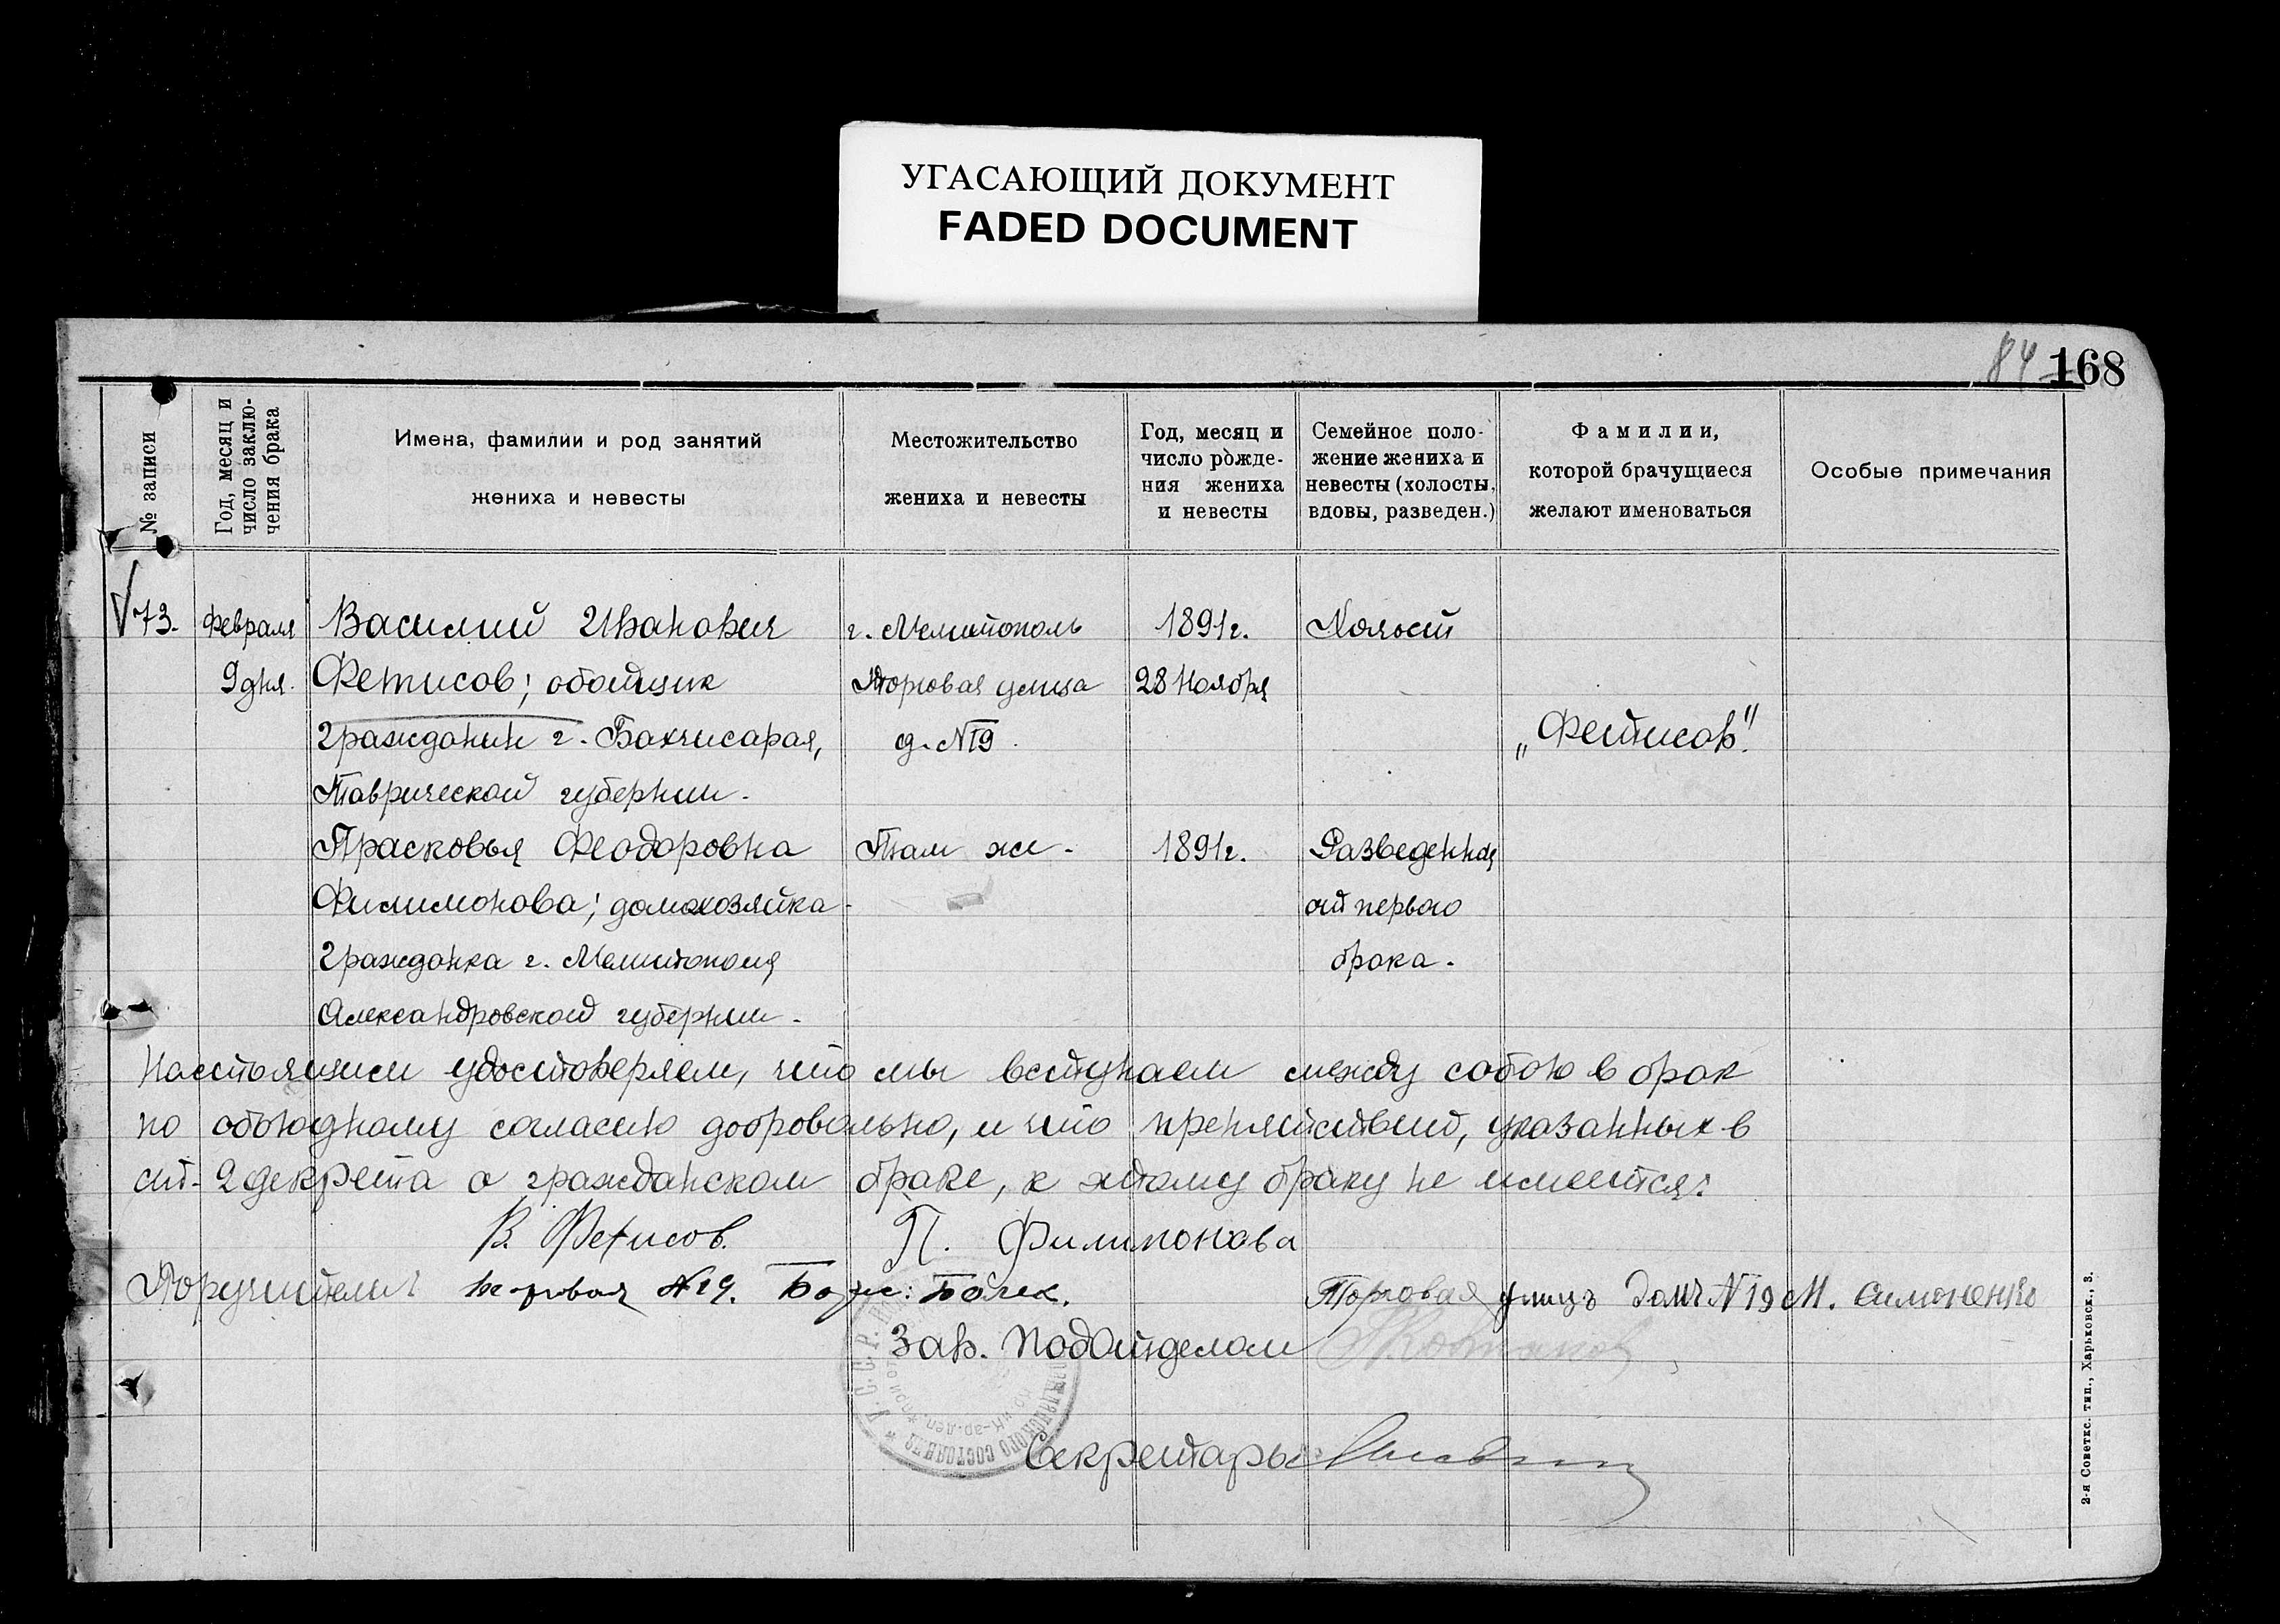 УГАСАЮЩИЙ ДОКУМЕНТ
FADED DOCUMENT
84 168
№ записи
Год, месяц и
число заклю-
чения брака
Имена, фамилии и род занятий
жениха и невесты
Местожительство
жениха и невесты
Год, месяц и
число рожде-
ния жениха
и невесты
Семейное поло-
жение жениха и
невесты (холосты,
вдовы, разведен.)
Фамилии,
которой брачущиеся
желают именоваться
Особые примечания
73. Февраля Василий Иванович г. Мелитополь 1891г. Холост
9 дня. Фетисов; обойщик Торговая улица 28 Ноября
Гражданин г. Бахчисарая, д. №19. „Фетисов".
Таврической губернии.
Прасковья Феодоровна Там же. 1891г. Разведенная
Филимонова; домохозяйка от первого
Гражданка г. Мелитополя брака.
Александровской губернии.
Настоящим удостоверяем, что мы вступаем между собою в брак
по обоюдному согласию добровольно, и что препятствий, указанных в
ст. 2 декрета о гражданском браке, к этому браку не имеется:
В. Фетисов. П. Филимонова
Поручители: №19. Торговая улицъ Домъ №19 М. Симоненко
Зав. Подотделом
Секретарь
2-я Советск. тип., Харьковск., 3.